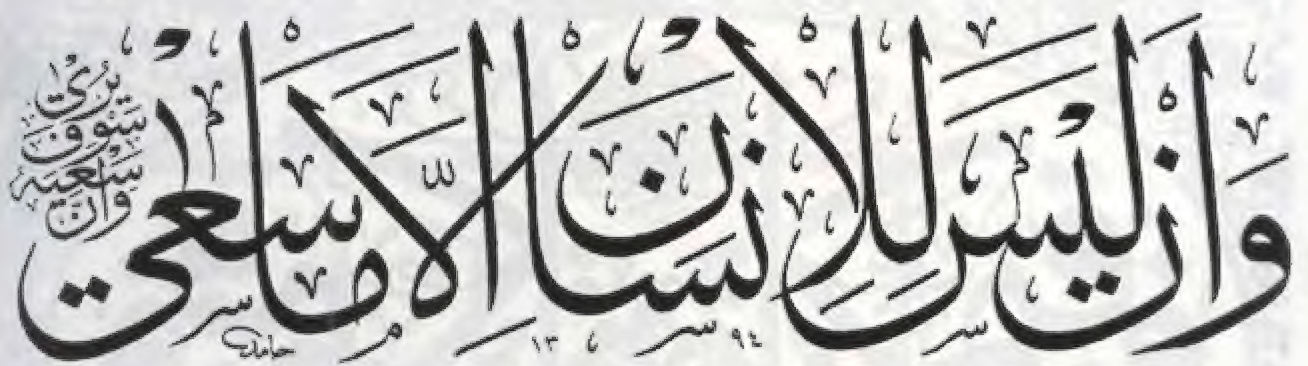 وَأَنْ لَيْسَ لِلْإِنْسَانِ إِلَّا مَا سَعٰى
وَأَنَّ سَعْيَهُ سَوْفَ يُرٰى
حامد
١٣ ٩٤